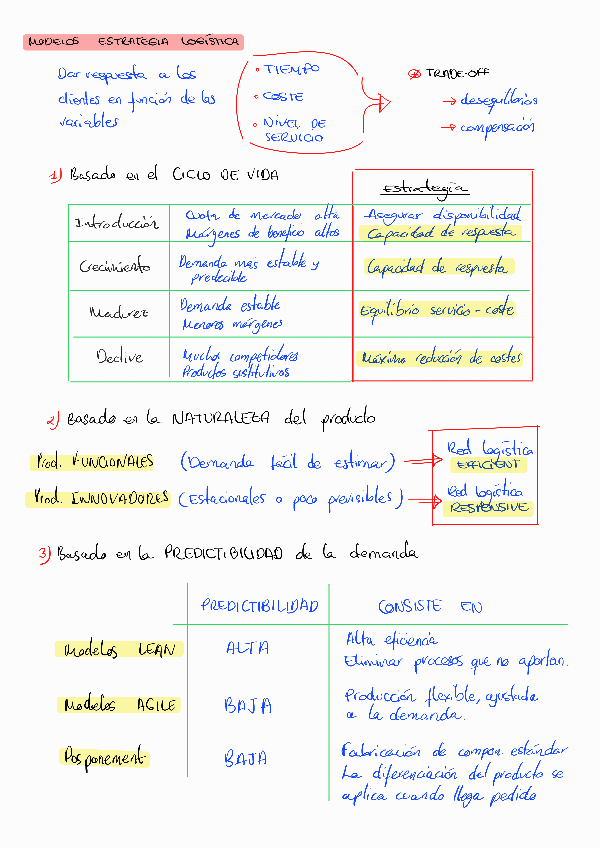 MODELOS ESTRATEGIA LOGÍSTICA
Dar respuesta a los
clientes en función de las
variables
• TIEMPO
• COSTE
• NIVEL DE
SERVICIO
TRADE-OFF
→ desequilibrios
→ compensación
1) Basado en el CICLO DE VIDA
Estrategia
Introducción
Cuota de mercado alta
Márgenes de benefico altos
Asegurar disponibilidad
Capacidad de respuesta
Crecimiento
Demanda más estable y
predecible
Capacidad de respuesta
Madurez
Demanda estable
Menores márgenes
Equilibrio servicio - coste
Declive
Muchos competidores
Productos sustitutivos
Máxima reducción de costes
2) Basado en la NATURALEZA del producto
Prod. FUNCIONALES (Demanda fácil de estimar) →
Red logística
EFFICIENT
Prod. INNOVADORES (Estacionales o poco previsibles) →
Red logística
RESPONSIVE
3) Basado en la PREDICTIBILIDAD de la demanda
PREDICTIBILIDAD CONSISTE EN
Modelos LEAN
ALTA
Alta eficiencia
Eliminar procesos que no aportan.
Modelos AGILE
BAJA
Producción flexible, ajustada
a la demanda.
Posponement
BAJA
Fabricación de compon. estándar
La diferenciación del producto se
aplica cuando llega pedido